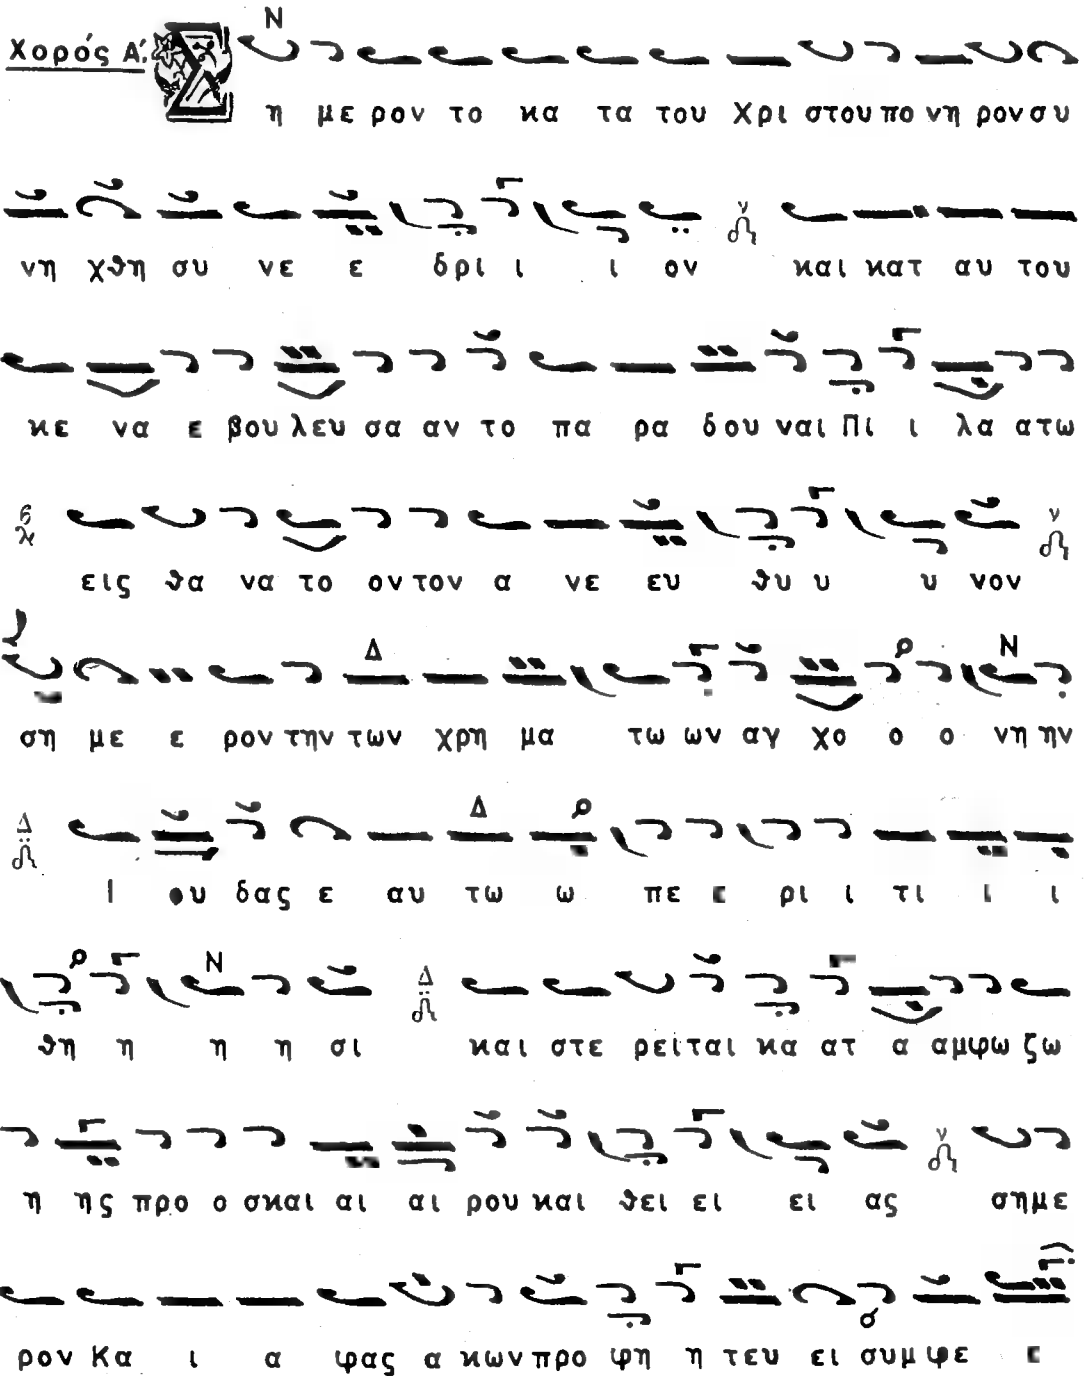 Χορός Α΄. Σ η με ρον το κα τα του Χρι στου πο νη ρον συ
νη χθη συ νε ε δρι ι ι ον και κατ αυ του
κε να ε βου λευ σα αν το πα ρα δου ναι Πι ι λα α τω
εις θα να το ον τον α νε ευ θυ υ υ νον
ση με ε ρον την των χρη μα τω ων αγ χο ο ο νη ην
Ι ου δας ε αυ τω ω πε ε ρι ι τι ι ι
θη η η η σι και στε ρεί ται κα ατ α αμφω ζω
η ης προ ο σκαι αι αι ρου και θει ει ει ας σημε
ρον Κα ι α φας α κων προ φη η τευ ει συμ φε ε